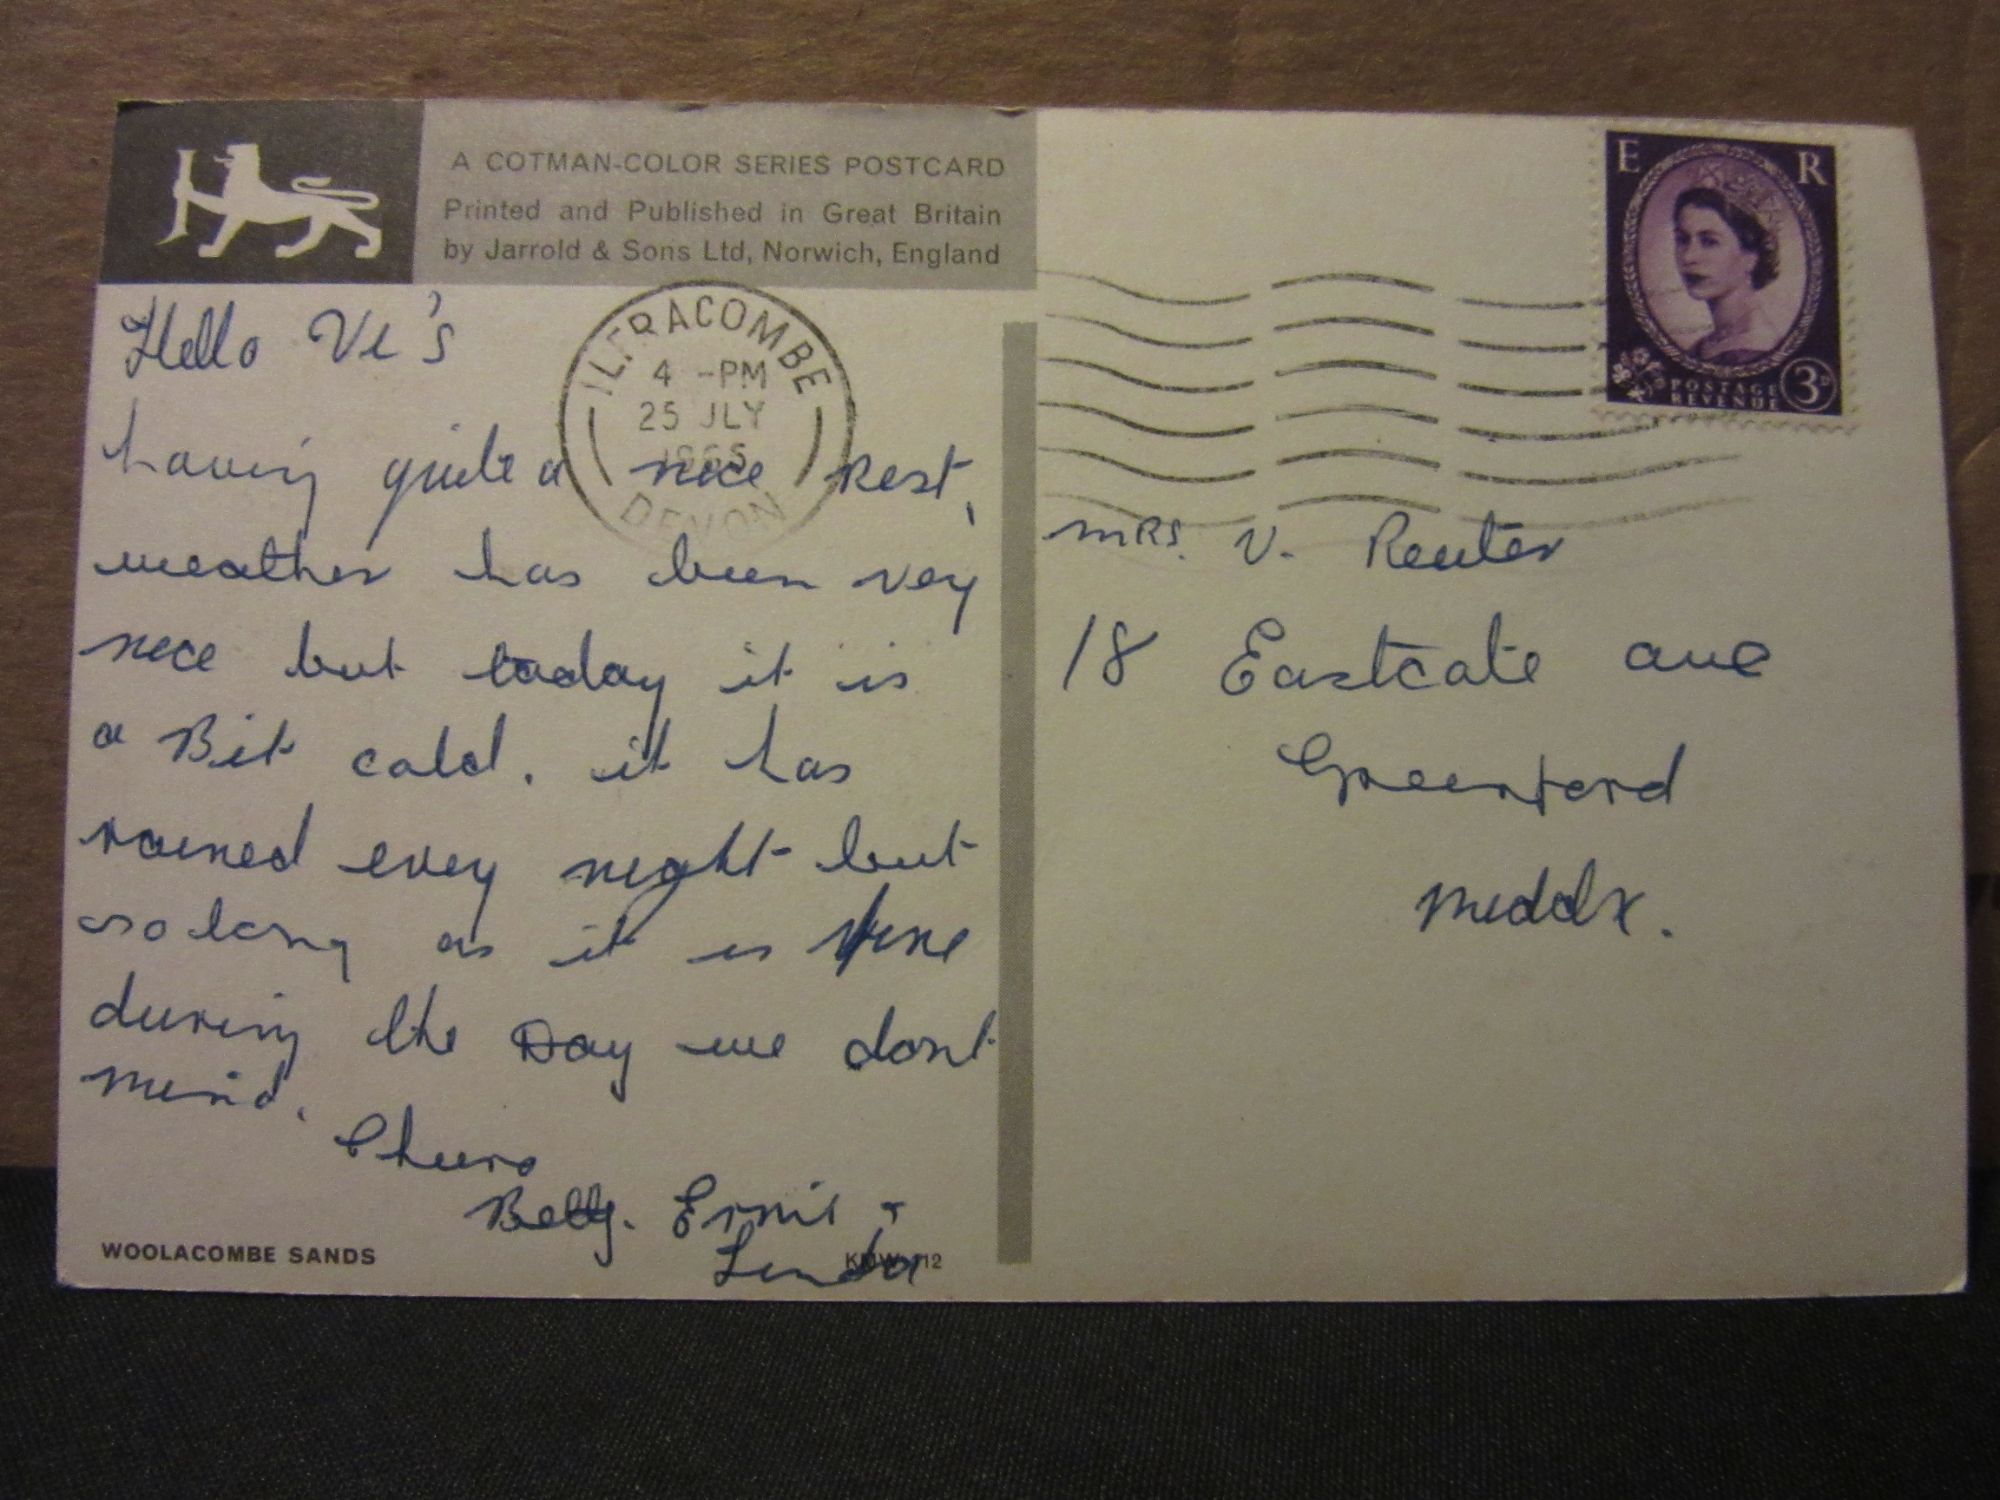 A COTMAN-COLOR SERIES POSTCARD
Printed and Published in Great Britain
by Jarrold & Sons Ltd, Norwich, England
Hello Vi's
having quite a nice Rest,
weather has been very
nice but today it is
a Bit cold. it has
rained every night but
so long as it is fine
during the Day we dont
mind.
Cheers
Betty. Ernie +
Linda
WOOLACOMBE SANDS
ILFRACOMBE
4 -PM
25 JLY
1965
DEVON
E R
POSTAGE
REVENUE
3D
MRS. V. Reuter
18 Eastcote ave
Greenford
Middlx.